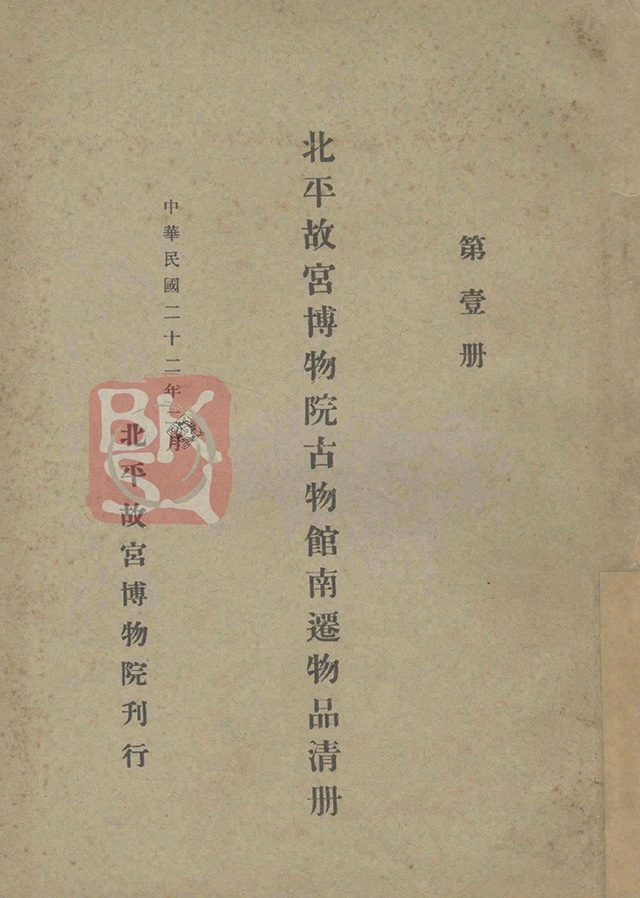 第壹册
北平故宮博物院古物館南遷物品清册
中華民國二十二年 月
北平故宮博物院刊行